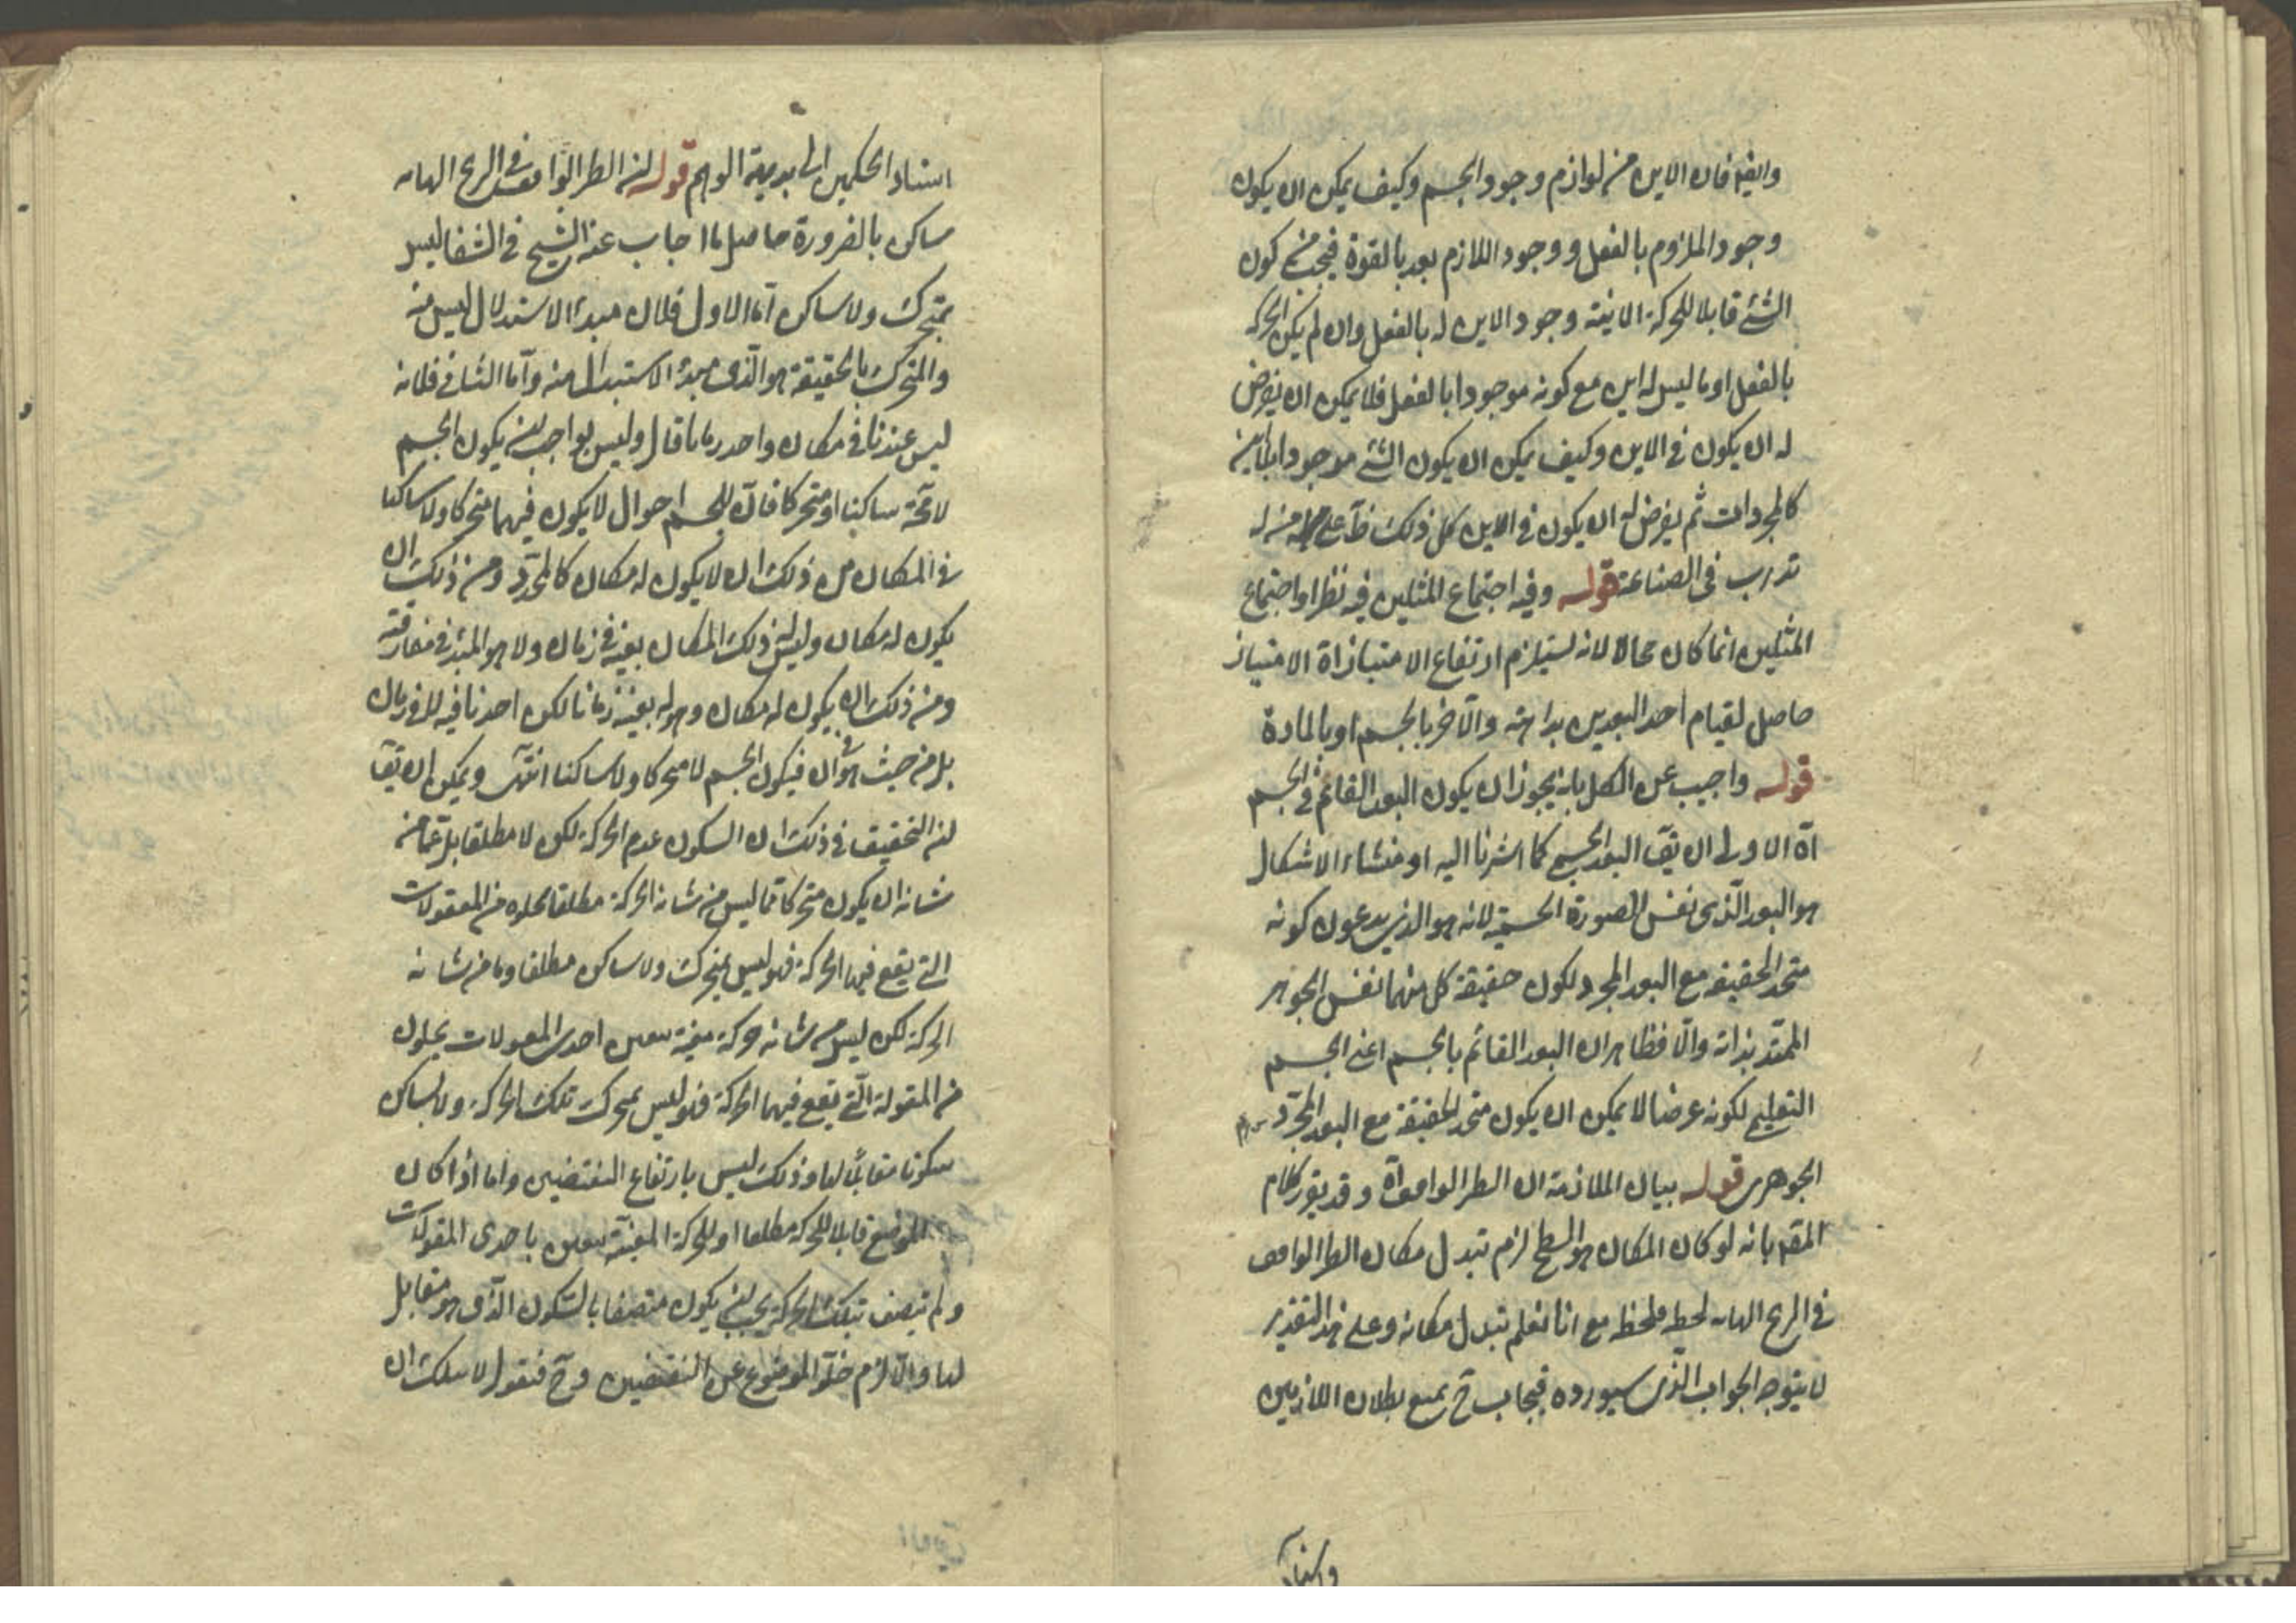 وايضه فان الاين من لوازم وجود الجسم وكيف يمكن ان يكون
وجود الملزوم بالفعل ووجود اللازم بعد بالقوة فيجب من كون
الشئ قابلا للحركة الاينية وجود الاين له بالفعل وان لم يكن الحركة
بالفعل او ما ليس له اين مع كونه موجودا بالفعل فلا يمكن ان يفرض
له ان يكون في الاين وكيف يمكن ان يكون الشئ موجودا بلا اين
كالمجردات ثم يفرض له ان يكون في الاين كل ذلك ظ على من له
تدرب في الصناعة قوله وفيه اجتماع المثلين فيه نظر اذ اجتماع
المثلين انما كان محالا لانه يستلزم ارتفاع الامتياز اة الامتياز
حاصل لقيام احد البعدين بذاته والآخر بالجسم او بالمادة
قوله واجيب عن الكل بانه يجوز ان يكون البعد القائم في الجسم
اة الاولى ان يق البعد الجسم كما اشرنا اليه اذ منشاء الاشكال
هو البعد الذى نفس الصورة الجسمية لانه هو الذى يدعون كونه
متحد الحقيقة مع البعد المجرد لكون حقيقة كل منهما نفس الجوهر
الممتد بذاته والا فظاهر ان البعد القائم بالجسم اعنى الجسم
التعليمى لكونه عرضا لا يمكن ان يكون متحد الحقيقة مع البعد المجرد
الجوهرى قوله بيان الملازمة ان الطير الواقف اة وقد يقرر كلام
المقم بانه لو كان المكان هو السطح لزم تبدل مكان الطير الواقف
في الريح الهابه لحظه فلحظه مع انا نعلم تبدل مكانه وعلى هذا التقدير
لا يتوجه الجواب الذى سيورده فيجاب ح بمنع بطلان اللازمين
واسناد
اسناد الحكمين الى بديهة الوهم قوله لان الطير الواقف في الريح الهابه
ساكن بالضرورة حاصل ما اجاب عنه الشيخ في الشفا ليس
بمتحرك ولا ساكن اما الاول فلان مبدء الاستبدال ليس منه
والمتحرك بالحقيقة هو الذى مبدء الاستبدال منه واما الثانى فلانه
ليس عندنا في مكان واحد زمانا قال وليس بواجب لان يكون الجسم
لا محة ساكنا او متحركا فان للجسم احوال لا يكون فيهما متحركا ولا ساكنا
في المكان من ذلك ان لا يكون له مكان كالمحدد ومن ذلك ان
يكون له مكان وليس له ذلك المكان بعينه في زمان ولا هو المبدء في مفارقته
ومن ذلك ان يكون له مكان وهو له بعينه زمانا لكن اخذنا فيه لا في زمان
بل من حيث هو في آن فيكون الجسم لا متحركا ولا ساكنا انتهى ويمكن ان يق
لان التحقيق في ذلك ان السكون عدم الحركة لكن لا مطلقا بل عما من
شانه ان يكون متحركا فما ليس من شانه الحركة مطلقا لخلوه من المقولات
التى يقع فيها الحركة فهو ليس بمتحرك ولا ساكن مطلقا وما من شانه
الحركة لكن ليس من شانه حركة معينة احدى المقولات بخلوه
من المقولة التى يقع فيها الحركة فهو ليس بمتحرك تلك الحركة ولا ساكن
سكونا مقابلا لها وذلك ليس بارتفاع النقيضين واما اذا كان
الموضوع قابلا للحركة مطلقا او للحركة المعينة باحدى المقولات
ولم يتصف بتلك الحركة يجب ان يكون متصفا بالسكون الذى هو مقابل
لها والا لزم خلو الموضوع عن النقيضين وح فنقول لا شك ان